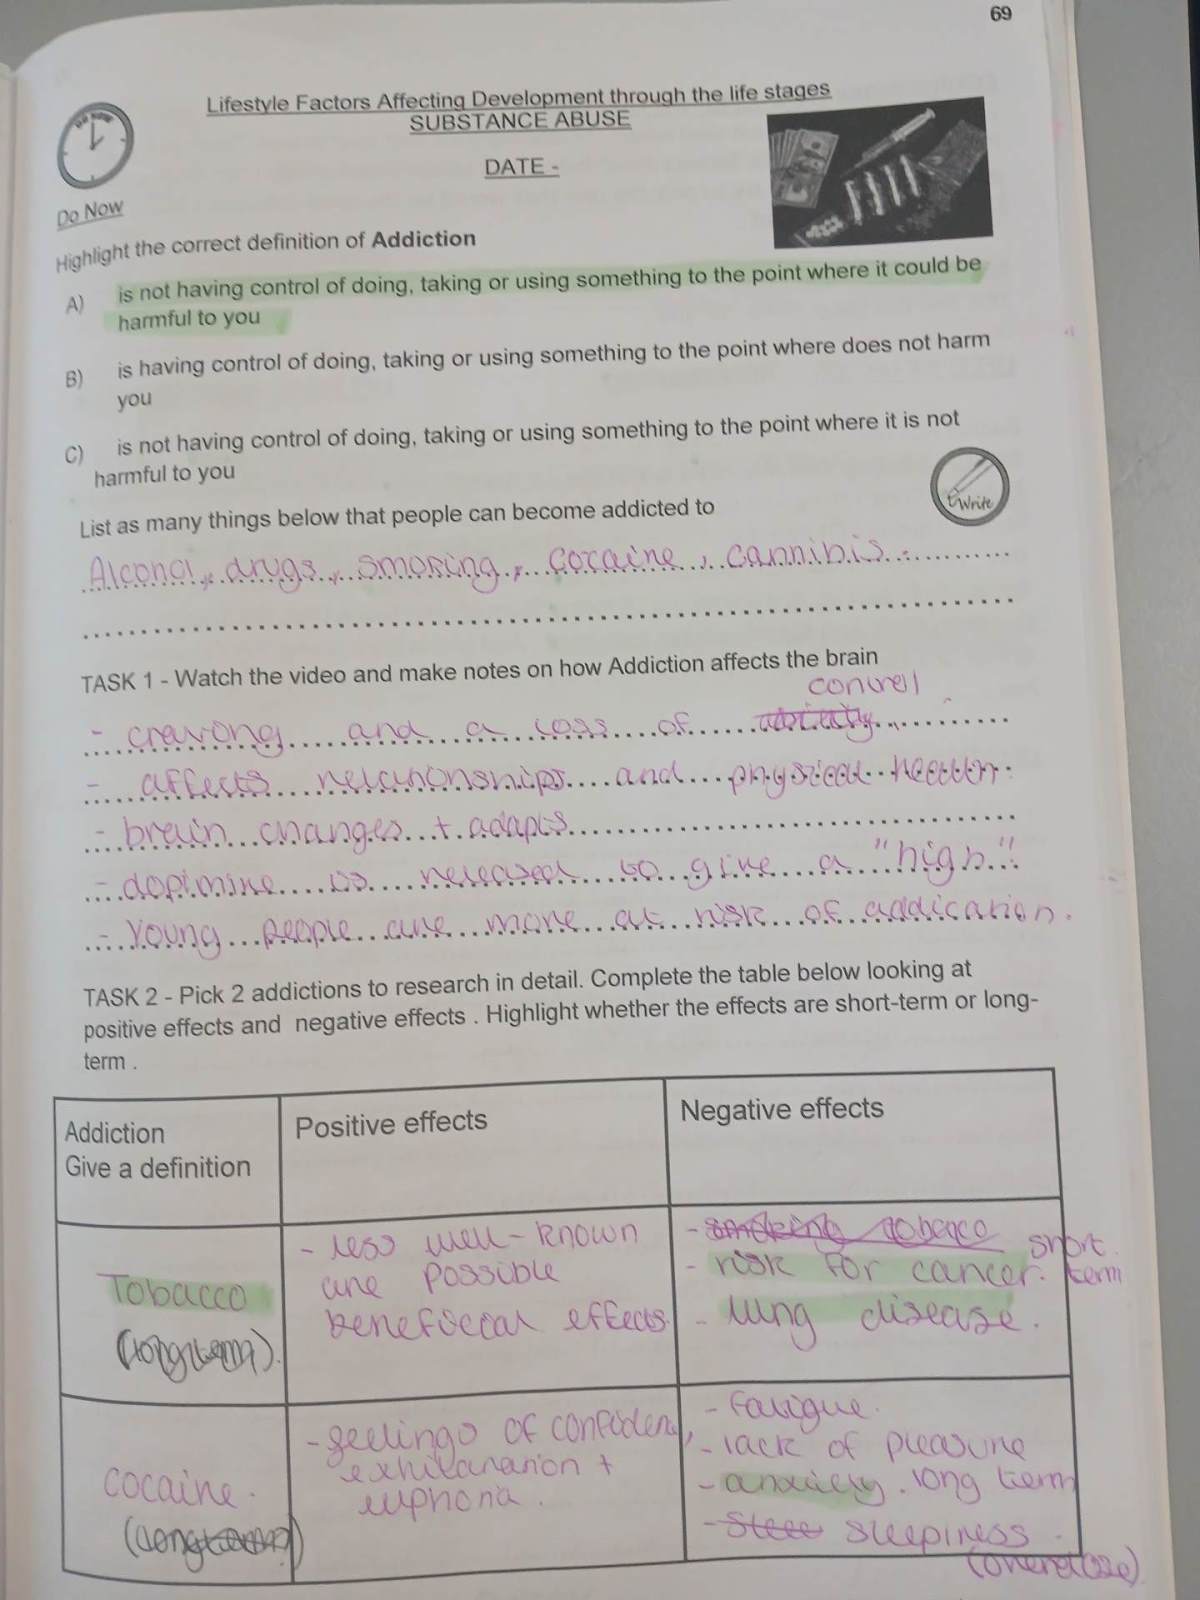 69
Lifestyle Factors Affecting Development through the life stages
SUBSTANCE ABUSE
DATE -
Do Now
Highlight the correct definition of Addiction
A) is not having control of doing, taking or using something to the point where it could be
harmful to you
B) is having control of doing, taking or using something to the point where does not harm
you
C) is not having control of doing, taking or using something to the point where it is not
harmful to you
Write
List as many things below that people can become addicted to
Alcohol, drugs, smoking, cocaine, cannibis.
TASK 1 - Watch the video and make notes on how Addiction affects the brain
controll
- craving and a loss of
- affects relationships and physical health.
- brain changes + adapts
- dopimine is released to give a "high".
- Young people are more at risk of addication.
TASK 2 - Pick 2 addictions to research in detail. Complete the table below looking at
positive effects and negative effects . Highlight whether the effects are short-term or long-
term .
Addiction
Give a definition
Positive effects
Negative effects
Tobacco
(long term).
- less well-known
are possible
beneficial effects.
- smoking tobacco
- risk for cancer. short term
- lung disease.
cocaine.
(long term)
- feelings of confidence,
exhilaration +
euphoria.
- Fatigue.
- lack of pleasure
- anxiety. long term
- sleee sleepiness.
(overdose)